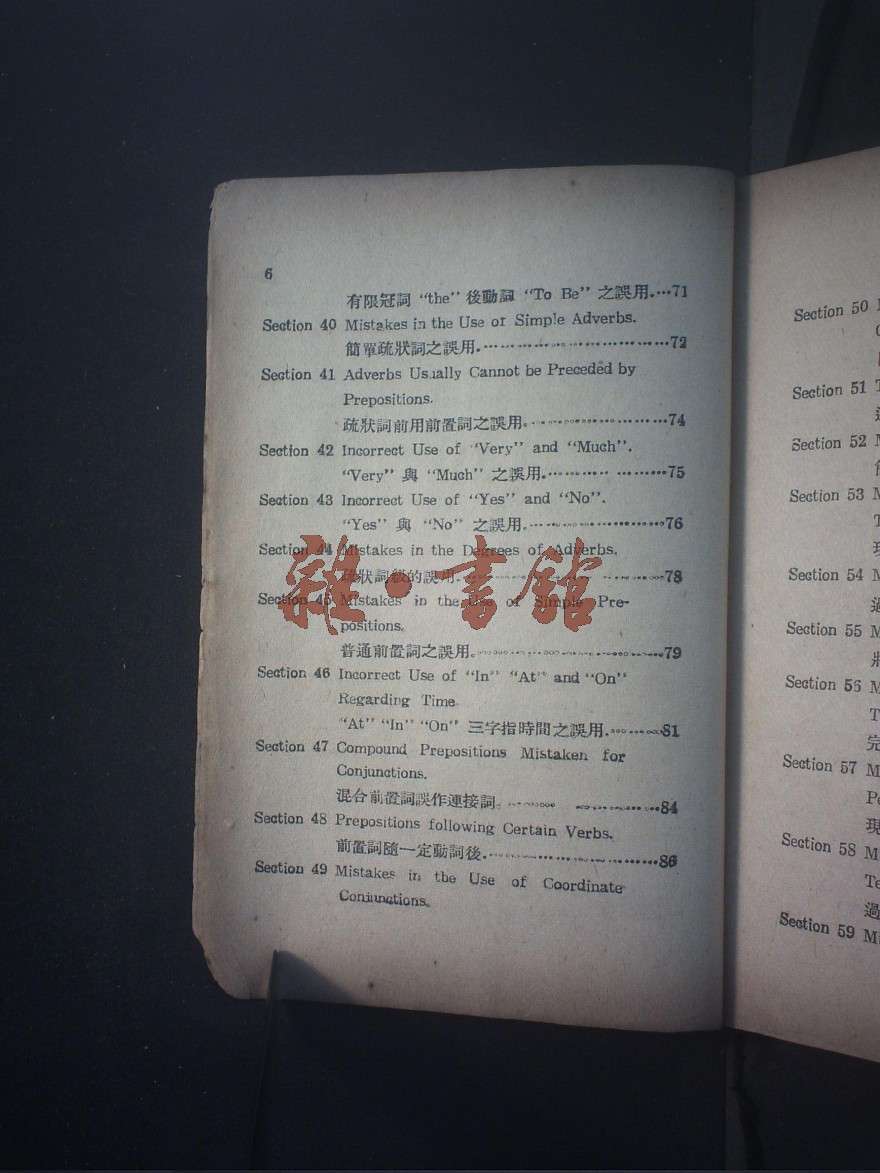 6
有限冠詞 “the” 後動詞 “To Be” 之誤用....71
Section 40 Mistakes in the Use of Simple Adverbs.
簡單疏狀詞之誤用.................................72
Section 41 Adverbs Usually Cannot be Preceded by
Prepositions.
疏狀詞前用前置詞之誤用。........................74
Section 42 Incorrect Use of “Very” and “Much”.
“Very” 與 “Much” 之誤用.....................75
Section 43 Incorrect Use of “Yes” and “No”.
“Yes” 與 “No” 之誤用.........................76
Section 44 Mistakes in the Degrees of Adverbs.
疏狀詞級的誤用.................................78
Section 45 Mistakes in the Use of Simple Pre-
positions.
普通前置詞之誤用。..............................79
Section 46 Incorrect Use of “In” “At” and “On”
Regarding Time.
“At” “In” “On” 三字指時間之誤用..........81
Section 47 Compound Prepositions Mistaken for
Conjunctions.
混合前置詞誤作連接詞。 ....................84
Section 48 Prepositions following Certain Verbs.
前置詞隨一定動詞後.............................86
Section 49 Mistakes in the Use of Coordinate
Conjunctions.
Section 50
Section 51
Section 52
Section 53
Section 54
Section 55
Section 56
Section 57
Section 58
Section 59
雜·書館